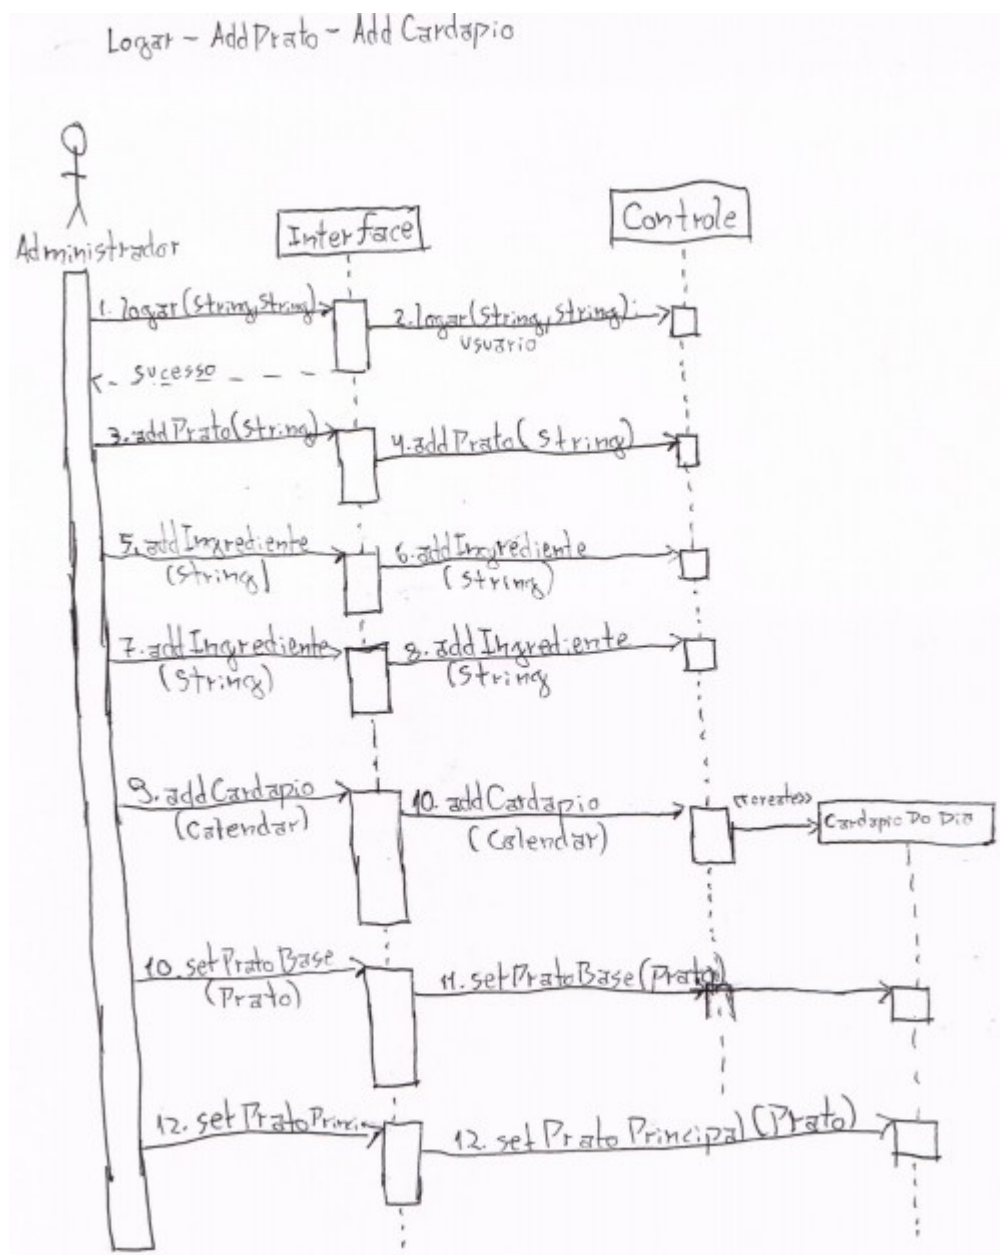 Logar - Add Prato - Add Cardapio
Administrador
Interface
Controle
1. logar (String, String)
2. logar (String, String):
usuario
sucesso
3. addPrato (String)
4. addPrato (String)
5. addIngrediente
(String)
6. addIngrediente
(String)
7. addIngrediente
(String)
8. addIngrediente
(String
9. addCardapio
(Calendar)
10. addCardapio
(Calendar)
<<create>>
Cardapio Do Dia
10. setPratoBase
(Prato)
11. setPratoBase (Prato)
12. setPratoPrinci
12. set Prato Principal (Prato)